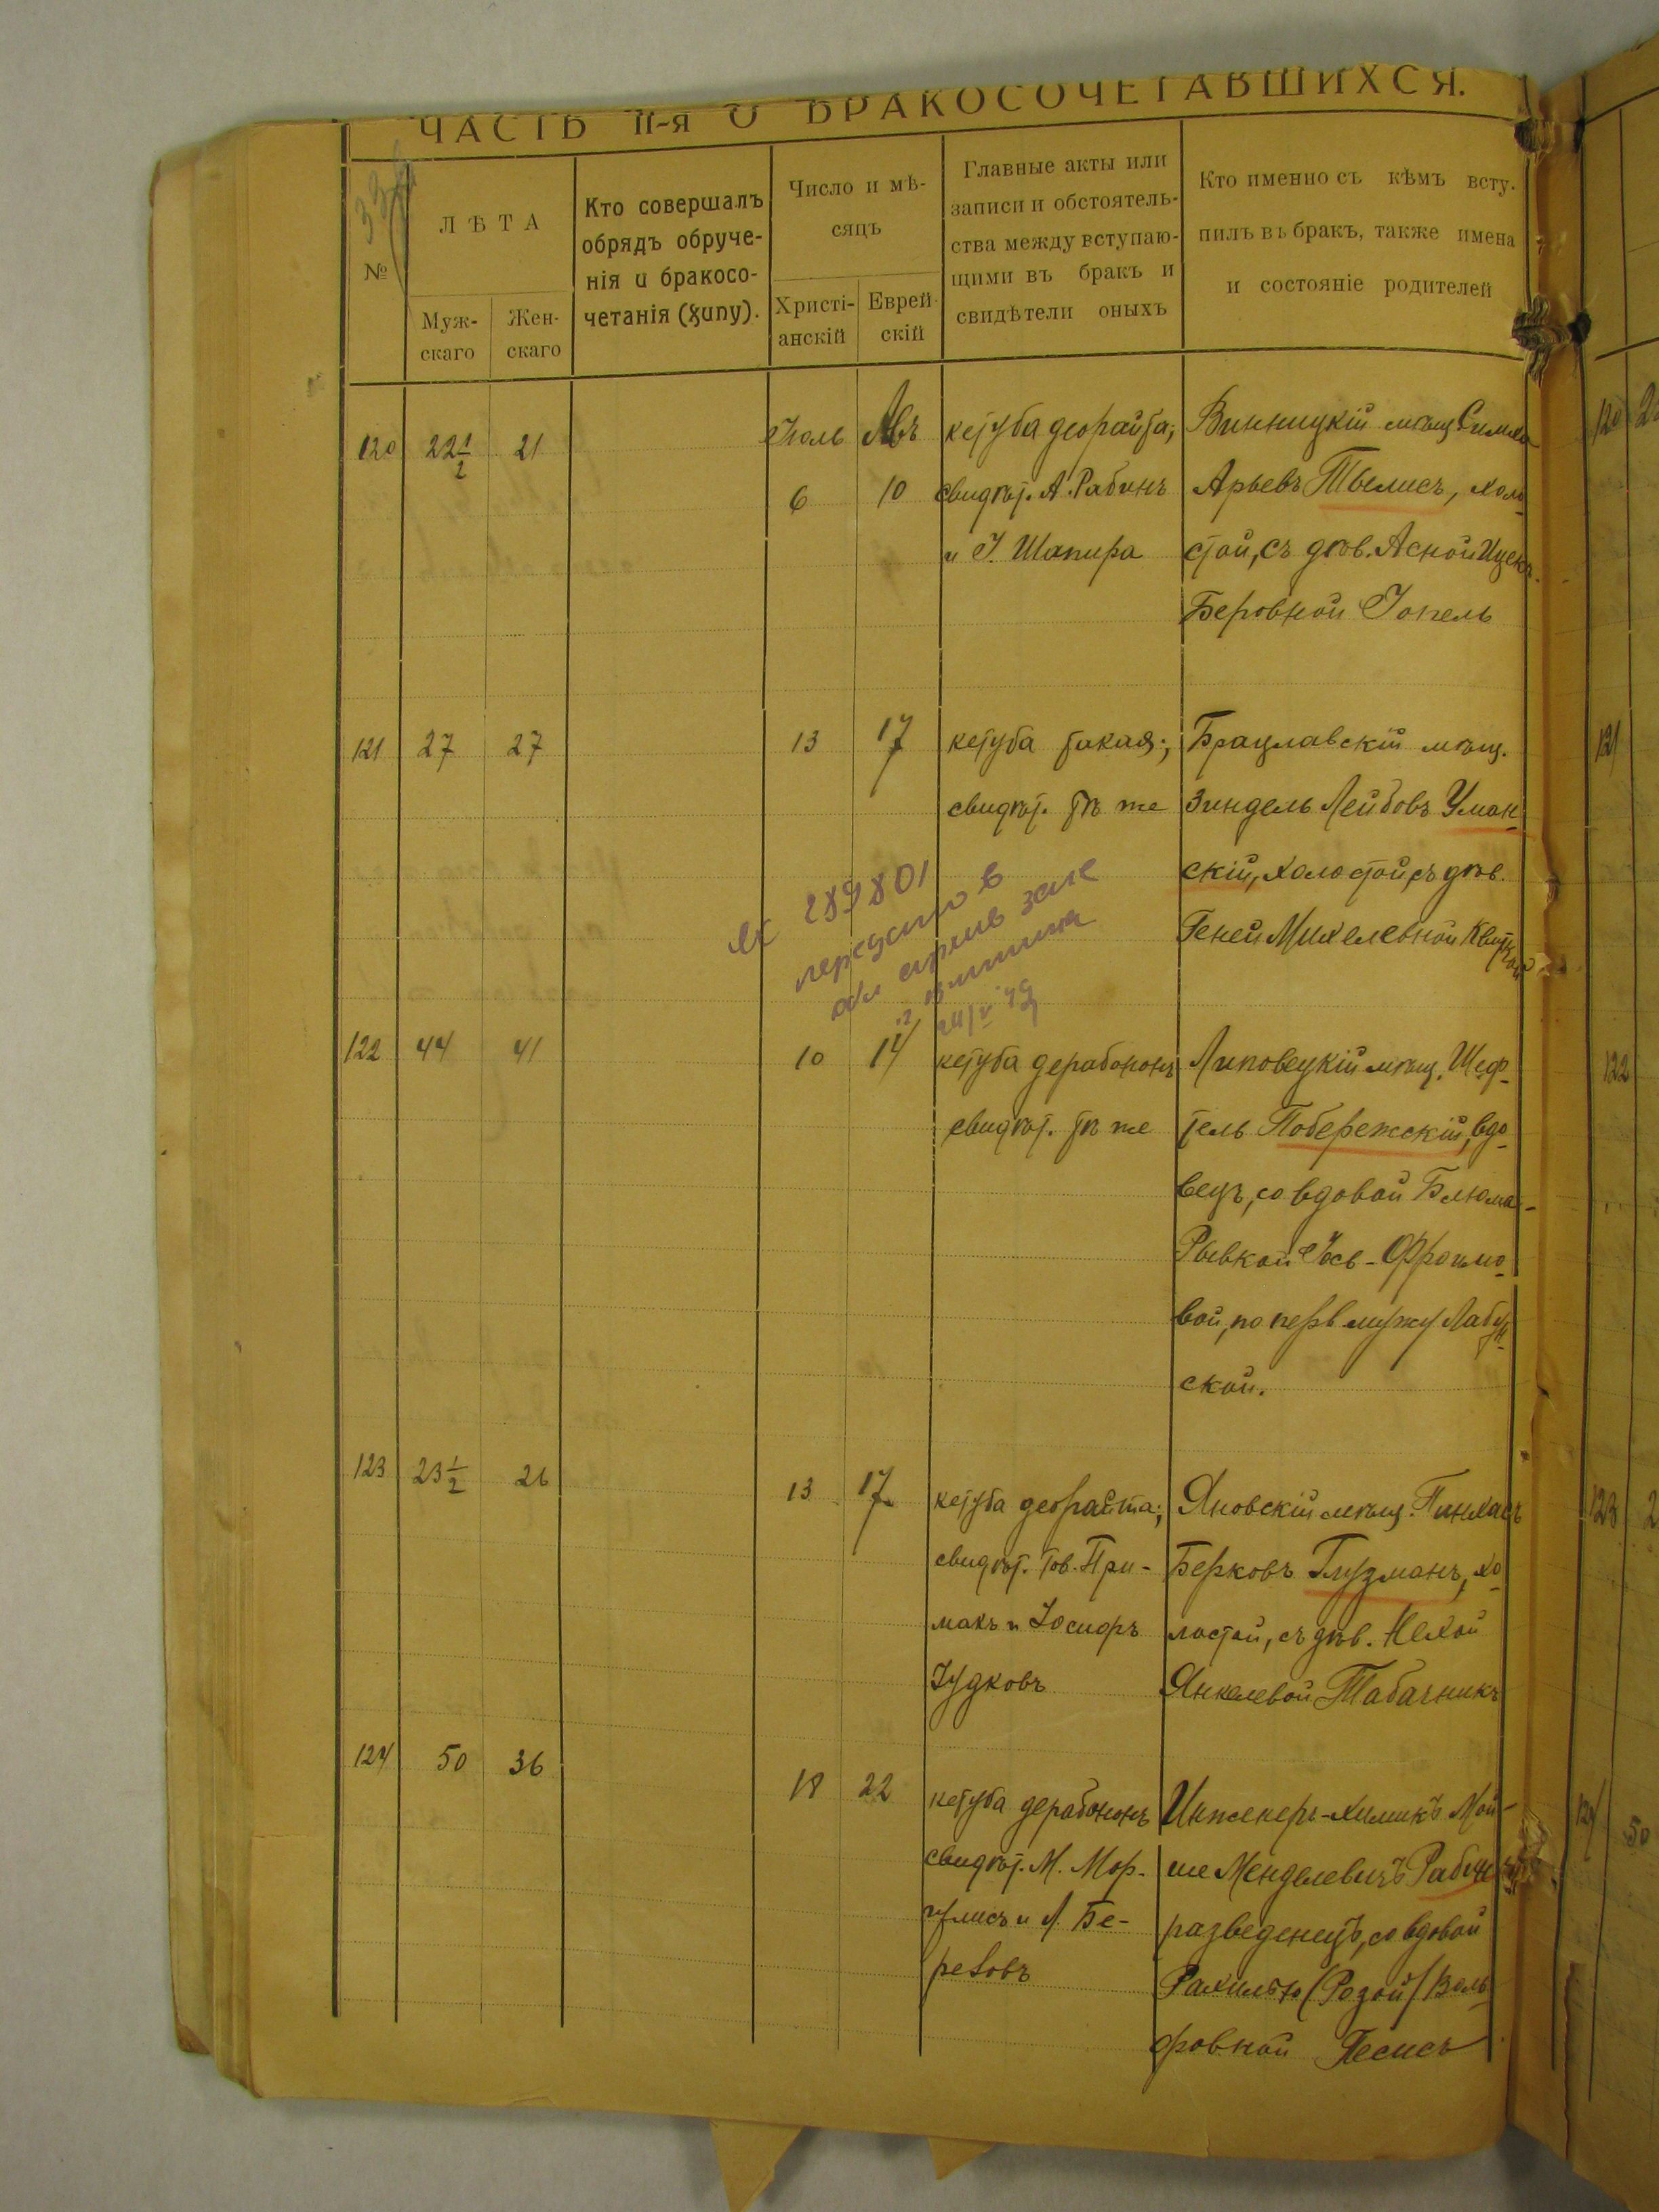 ЧАСТЬ II-я О БРАКОСОЧЕТАВШИХСЯ.
№
ЛѢТА
Муж-
скаго
Жен-
скаго
Кто совершалъ
обрядъ обруче-
нія и бракосо-
четанія (хупу).
Число и мѣ-
сяцъ
Христі-
анскій
Еврей-
скій
Главные акты или
записи и обстоятель-
ства между вступаю-
щими въ бракъ и
свидѣтели оныхъ
Кто именно съ кѣмъ всту-
пилъ въ бракъ, также имена
и состояніе родителей
120 22 1/2 21
Іюль Авъ
6 10
кетуба деорайта;
свидѣт. А. Рабинъ
и І. Шапира
Винницкій мѣщ. Симха
Арьевъ Твелисъ, холо-
стой, съ дѣв. Асной Ицекъ-
Беровной Гопель
121 27 27 13 17
кетуба такая;
свидѣт. тѣ же
Брацлавскій мѣщ.
Зиндель Лейбовъ Уман-
скій, холостой, съ дѣв.
Геней Михелевной
№ 289801
передано в
122 44 41 10 14
кетуба дерабононъ
свидѣт. тѣ же
Липовецкій мѣщ. Шеф-
тель Побережскій, вдо-
вецъ, со вдовой Блюма-
Рывкой Іось-Фроимо-
вой, по перв мужу Лабун-
ской.
123 23 1/2 26 13 17
кетуба деорайта;
свидѣт. Тов. При-
макъ и Іосифъ
Гудковъ
Яновскій мѣщ. Пинхасъ
Берковъ Глузманъ, хо-
лостой, съ дѣв. Нехой
Янкелевой Табачникъ
124 50 36 18 22
кетуба дерабононъ
свидѣт. М. Мар-
гулисъ и Л. Бе-
резовъ
Инженеръ-химикъ Мой-
ше Менделевичъ
разведенецъ, со вдовой
Рахилью (Розой) Воль-
фовной Песисъ
120
121
122
123
124 50